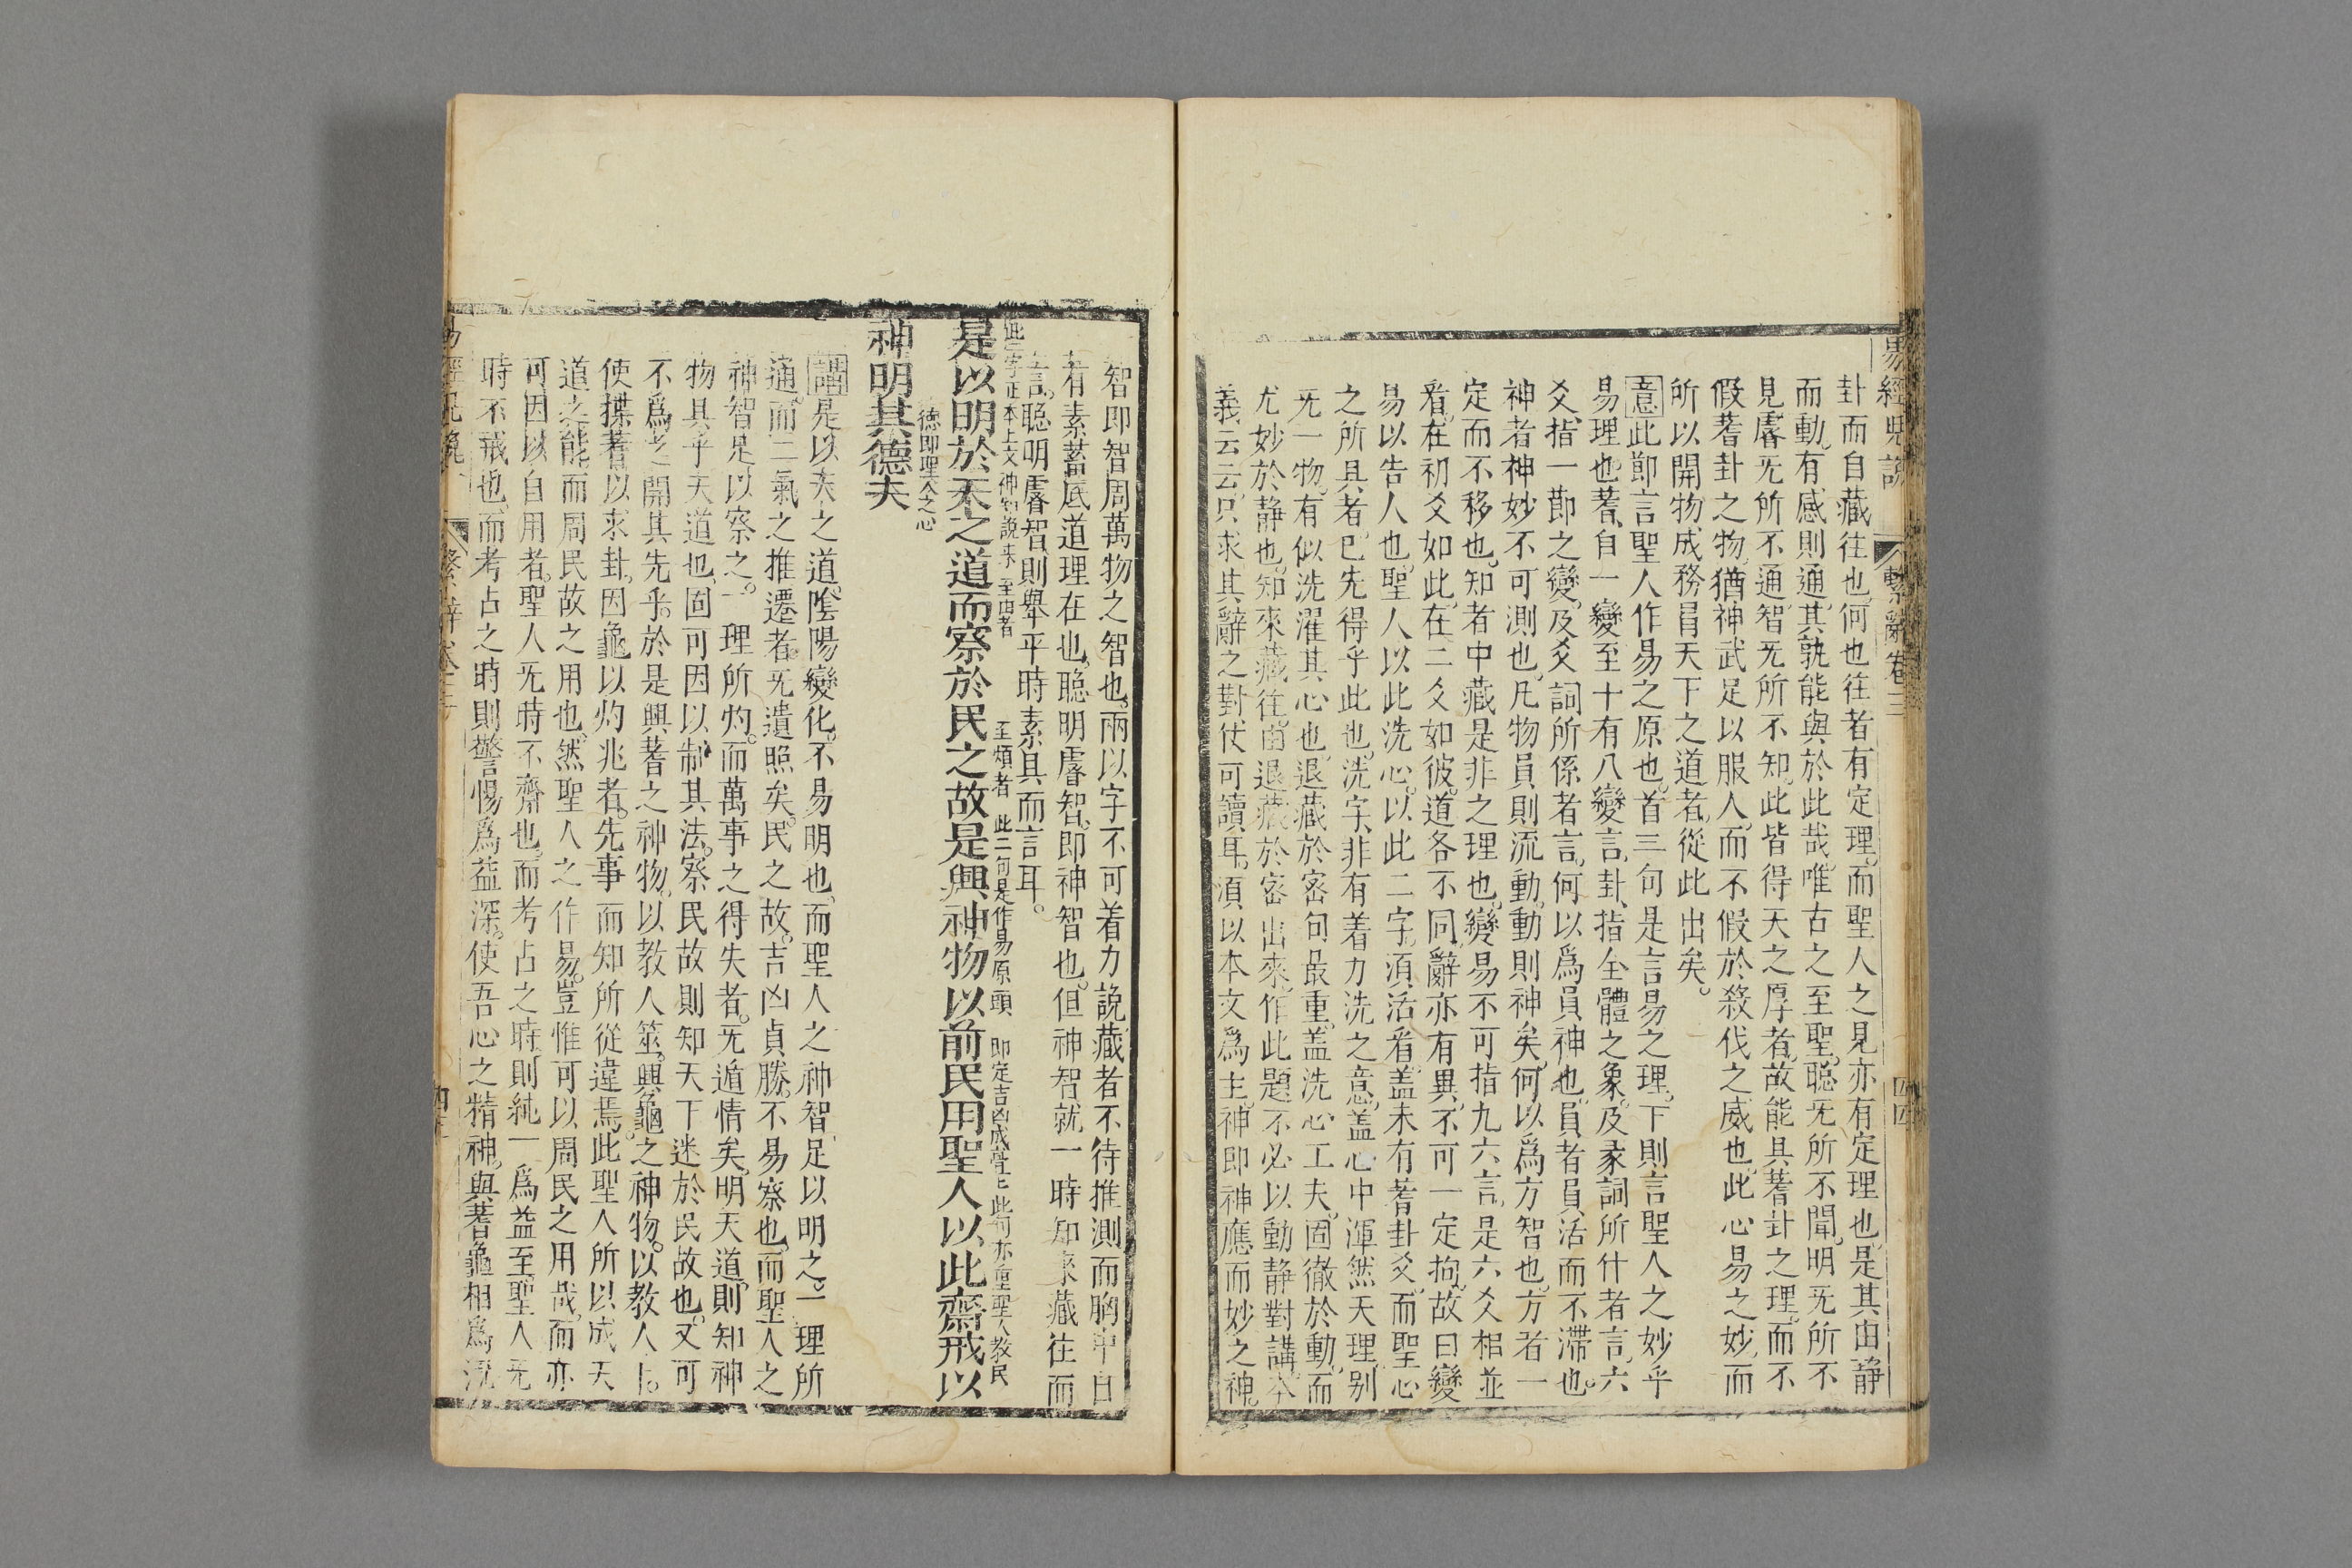 易經兒說 繫辭卷三 四四
卦而自藏往也何也往者有定理而聖人之見亦有定理也是其由静
而動有感則通其孰能與於此哉唯古之至聖聰无所不聞明无所不
見睿无所不通智无所不知此皆得天之厚者故能具蓍卦之理而不
假蓍卦之物猶神武足以服人而不假於殺伐之威也此心易之妙而
所以開物成務冐天下之道者從此出矣
意此節言聖人作易之原也首三句是言易之理下則言聖人之妙乎
易理也蓍自一變至十有八變言卦指全體之象及彖詞所什者言六
爻指一節之變及爻詞所係者言何以爲員神也員者員活而不滯也
神者神妙不可測也凡物員則流動動則神矣何以爲方智也方者一
定而不移也知者中藏是非之理也變易不可指九六言是六爻相並
看在初爻如此在二爻如彼道各不同辭亦有異不可一定拘故曰變
易以告人也聖人以此洗心以此二字須活看蓋未有蓍卦爻而聖心
之所具者已先得乎此也洗字非有着力洗之意蓋心中渾然天理别
无一物有似洗濯其心也退藏於密句最重蓋洗心工夫固徹於動而
尤妙於静也知來藏往由退藏於密出來作此題不必以動静對講本
義云云只求其辭之對仗可讀耳須以本文爲主神即神應而妙之神
智即智周萬物之智也兩以字不可着力說藏者不待推測而胸中日
有素蓄底道理在也聰明睿智即神智也但神智就一時知來藏往而
言聰明睿智則舉平時素具而言耳
此三字正本上文神智說来 至由者 至頻者 此二句是作易原頭 即定吉凶成亹亹 此句亦重聖人教民
是以明於天之道而察於民之故是興神物以前民用聖人以此齋戒以
德即聖人之心
神明其德夫
講是以天之道陰陽變化不易明也而聖人之神智足以明之一理所
通而二氣之推遷者无遺照矣民之故吉凶貞勝不易察也而聖人之
神智足以察之一理所灼而萬事之得失者无遁情矣明天道則知神
物具乎天道也固可因以制其法察民故則知天下迷於民故也又可
不爲之開其先乎於是興蓍之神物以教人筮興龜之神物以教人卜
使揲蓍以求卦因龜以灼兆者先事而知所從違焉此聖人所以成天
道之能而周民故之用也然聖人之作易豈惟可以周民之用哉而亦
可因以自用者聖人无時不齋也而考占之時則純一爲益至聖人无
時不戒也而考占之時則警惕爲益深使吾心之精神與蓍龜相爲流